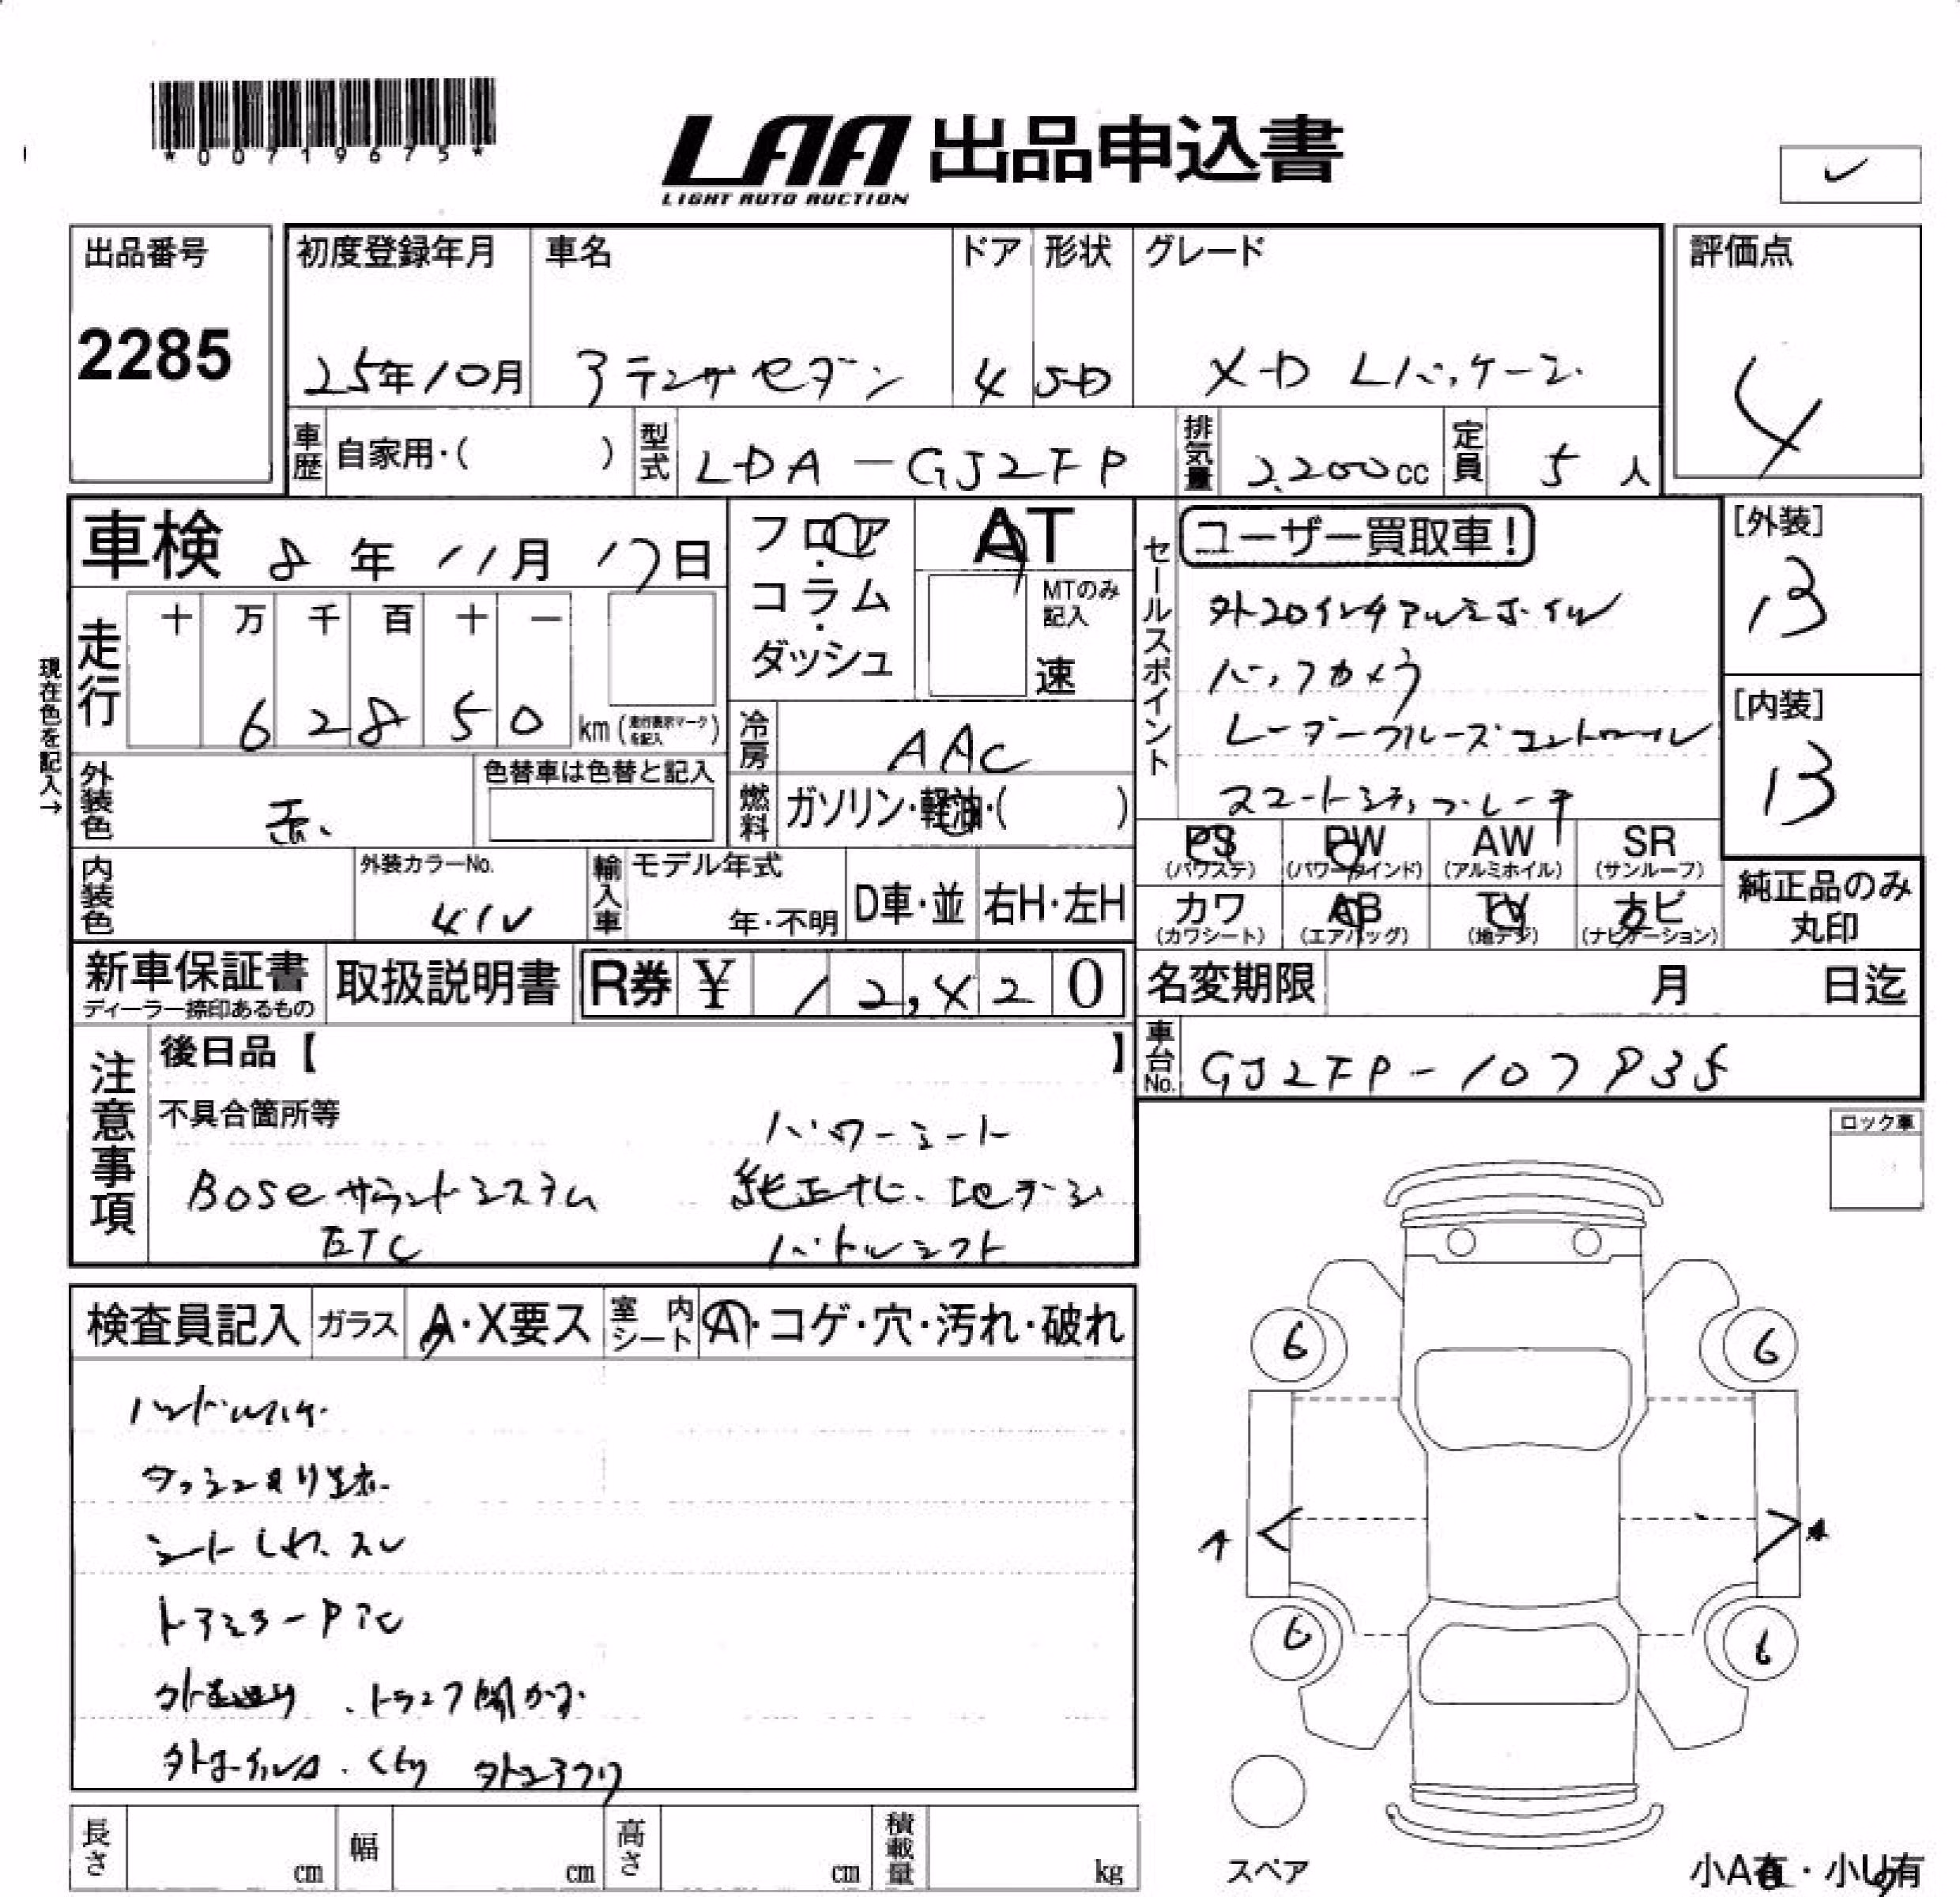 *00719675*
LAA 出品申込書
LIGHT AUTO AUCTION
出品番号
2285
初度登録年月
25年10月
車名
アテンザセダン
ドア
4
形状
SD
グレード
XD Lパッケージ
評価点
4
車歴
自家用・( )
型式
LDA-GJ2FP
排気量
2,200cc
定員
5人
車検 8年11月17日
フロア・コラム・ダッシュ
AT
MTのみ記入
速
走行
十 万 千 百 十 一
6 2 8 5 0 km (走行表示マークを記入)
現在色を記入→
冷房
AAC
外装色
赤
色替車は色替と記入
燃料
ガソリン・軽油・( )
内装色
外装カラーNo.
41V
輸入車
モデル年式
年・不明
D車・並
右H・左H
セールスポイント
ユーザー買取車!
外20インチアルミホイル
バックカメラ
レーダークルーズコントロール
スマートシティブレーキ
[外装]
13
[内装]
13
PS
(パワステ)
PW
(パワーウインド)
AW
(アルミホイル)
SR
(サンルーフ)
カワ
(カワシート)
AB
(エアバッグ)
TV
(地デジ)
ナビ
(ナビゲーション)
純正品のみ
丸印
新車保証書
ディーラー捺印あるもの
取扱説明書
R券 ¥ 12,420
名変期限 月 日迄
車台No.
GJ2FP-107935
注意事項
後日品【 】
不具合箇所等
パワーシート
Boseサラウンドシステム 純正ナビ、地デジ
ETC パドルシフト
ロック車
検査員記入
ガラス
A・X要ス
室内シート
A・コゲ・穴・汚れ・破れ
ハンドルハゲ
シートしわ、スレ
ドアミラーPキズ
トランク開かず
6 6
A A
6 6
スペア
小A有・小U有
長さ cm
幅 cm
高さ cm
積載量 kg